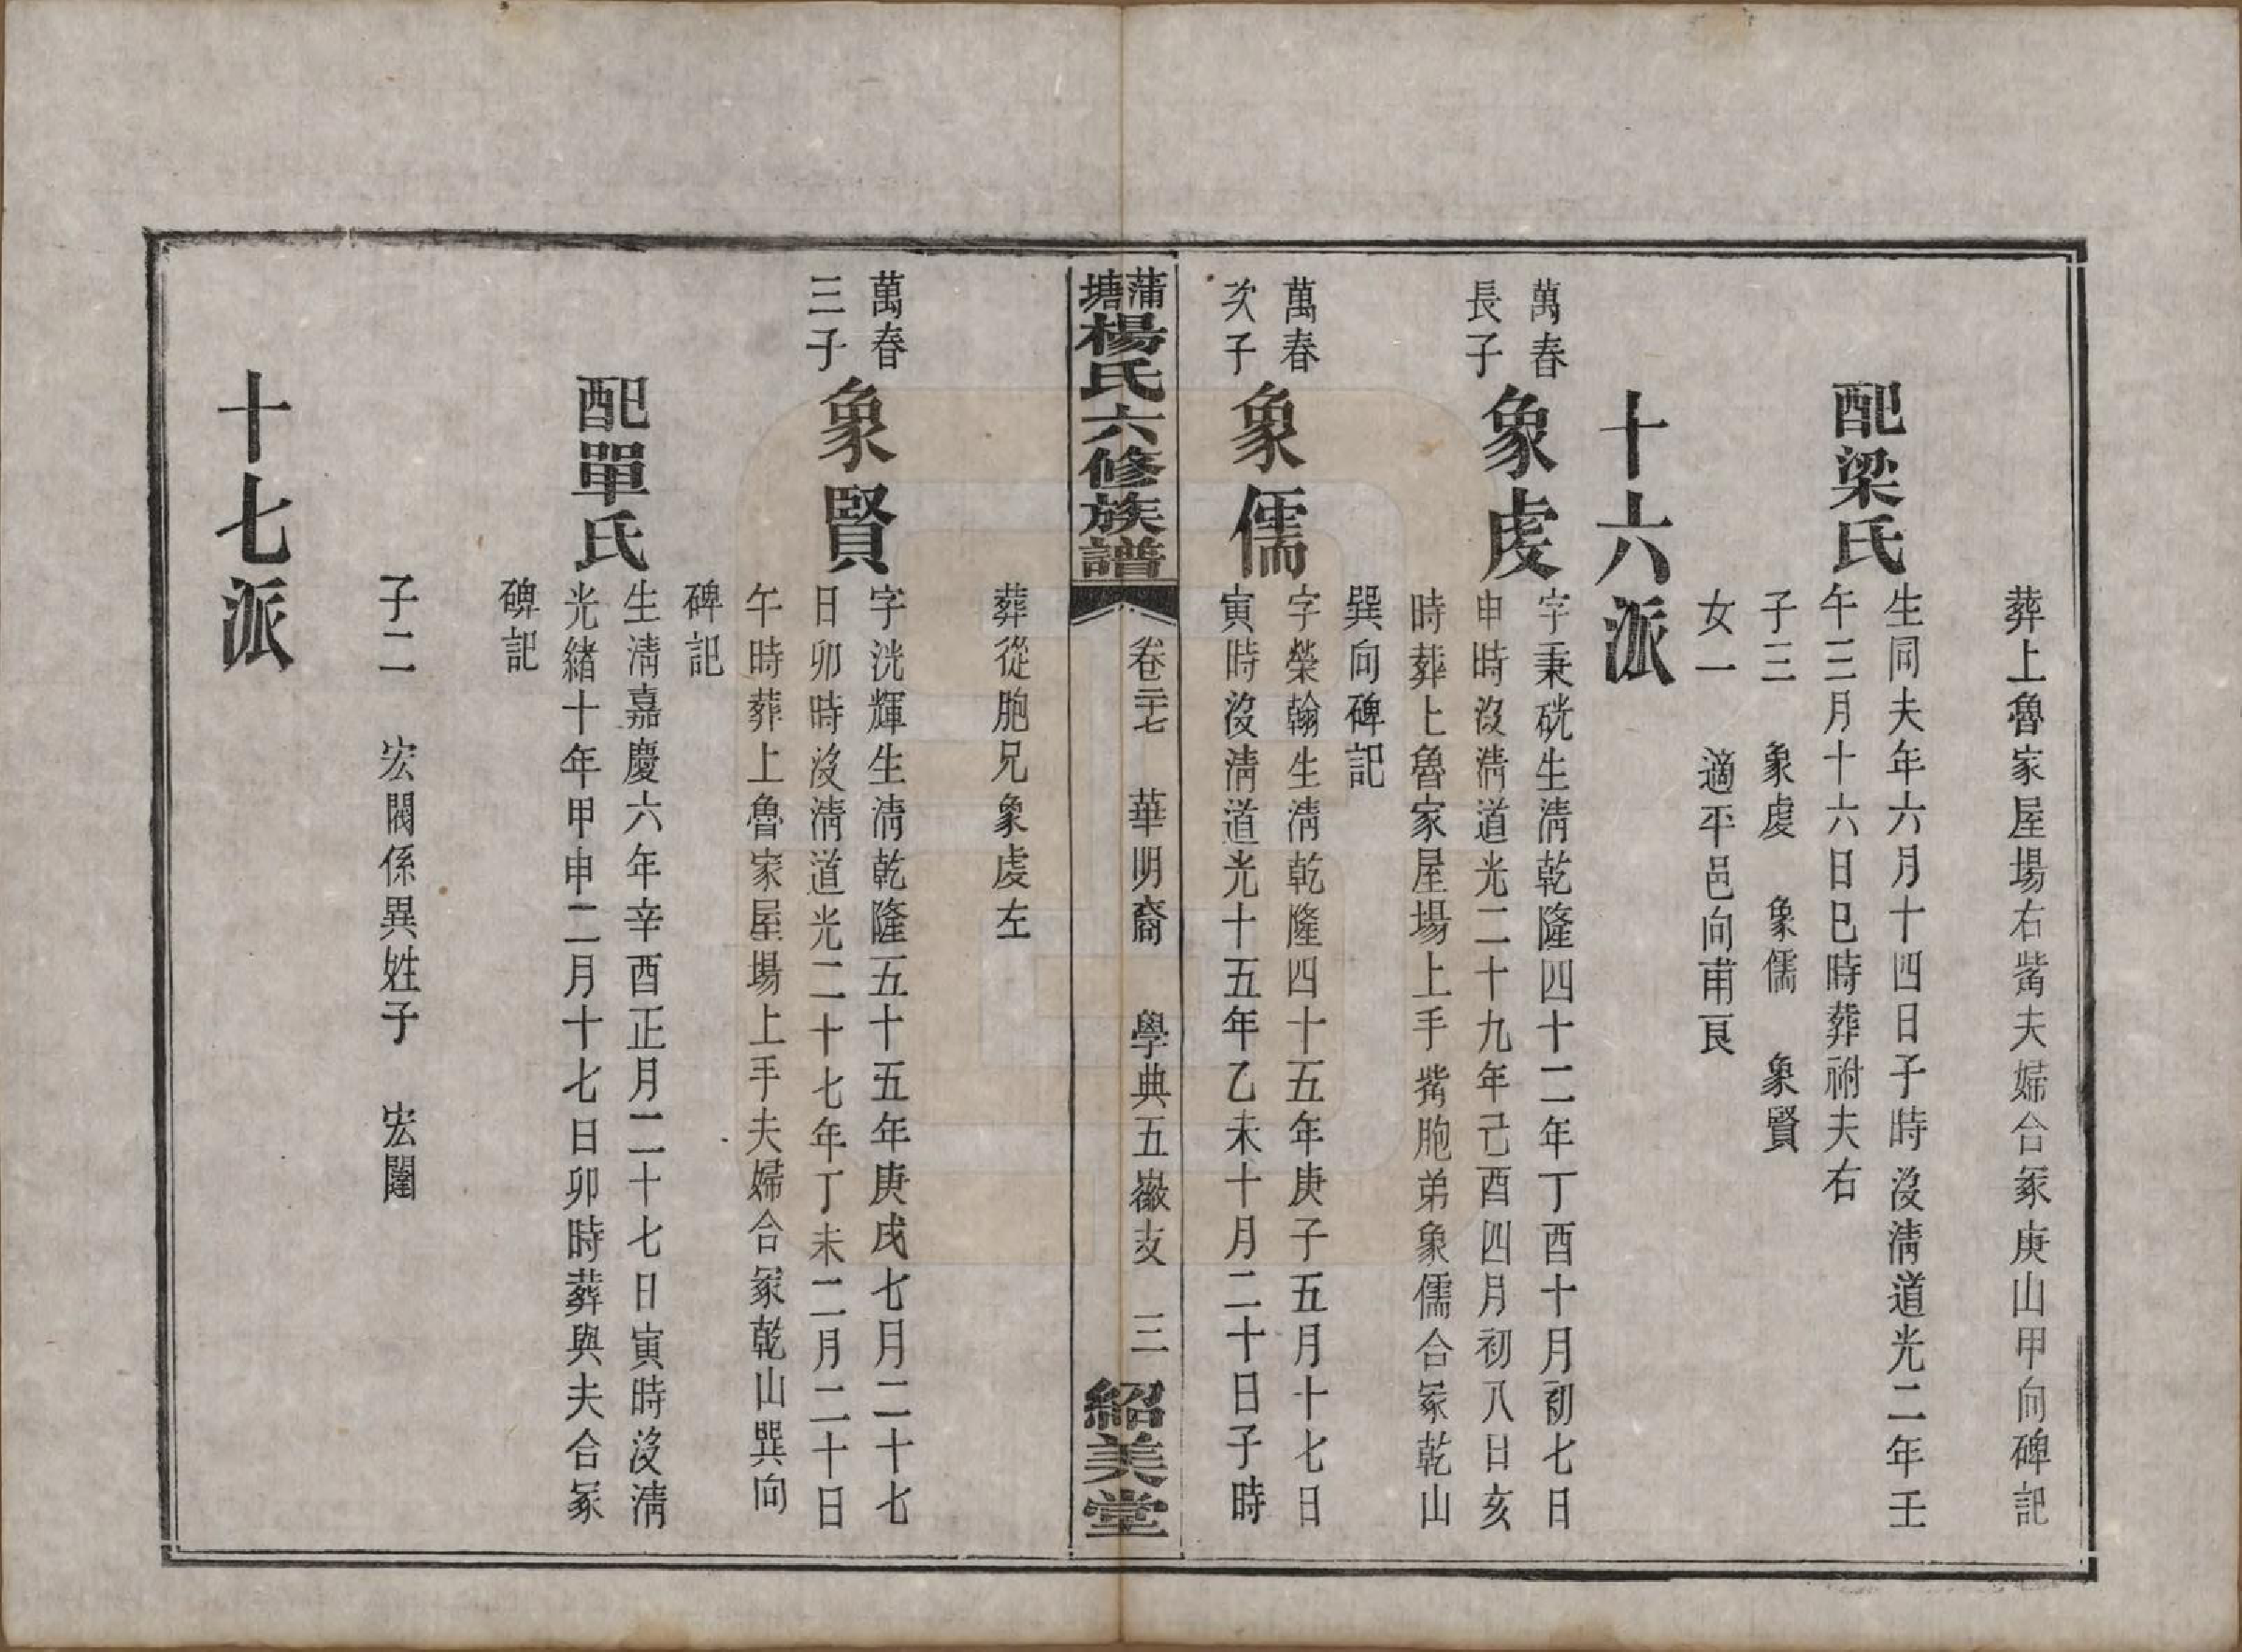 葬上魯家屋場右觜夫婦合冢庚山甲向碑記
配梁氏
生同夫年六月十四日子時沒清道光二年壬
午三月十六日巳時葬祔夫右
子三 象虔 象儒 象賢
女一 適平邑向甫艮
十六派
萬春
長子
象虔
字秉硄生清乾隆四十二年丁酉十月初七日
申時沒清道光二十九年己酉四月初八日亥
時葬上魯家屋場上手觜胞弟象儒合冢乾山
巽向碑記
萬春
次子
象儒
字榮翰生清乾隆四十五年庚子五月十七日
寅時沒清道光十五年乙未十月二十日子時
蒲塘楊氏六修族譜
卷二十七 華明裔 學典五嶽支 三
紹美堂
葬從胞兄象虔左
萬春
三子
象賢
字洸輝生清乾隆五十五年庚戌七月二十七
日卯時沒清道光二十七年丁未二月二十日
午時葬上魯家屋場上手夫婦合冢乾山巽向
碑記
配單氏
生清嘉慶六年辛酉正月二十七日寅時沒清
光緒十年甲申二月十七日卯時葬與夫合冢
碑記
子二 宏閣係異姓子 宏闥
十七派